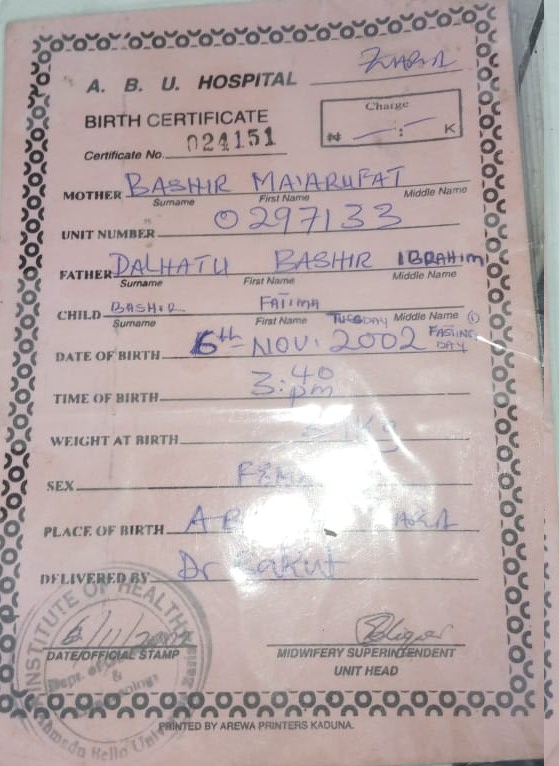 ZARIA
A. B. U. HOSPITAL
Charge
BIRTH CERTIFICATE
₦ —:— K
Certificate No. 024151
MOTHER BASHIR MAIARUFAT
Surname First Name Middle Name
UNIT NUMBER 0297133
FATHER DALHATU BASHIR IBRAHIM
Surname First Name Middle Name
CHILD BASHIR FATIMA
Surname First Name Middle Name
TUESDAY ① FASTING DAY
DATE OF BIRTH 6th NOV. 2002
TIME OF BIRTH 3:40 pm
WEIGHT AT BIRTH kg
SEX FEM
PLACE OF BIRTH AB
DELIVERED BY Dr
INSTITUTE OF HEALTH
6/11/2002
DATE/OFFICIAL STAMP MIDWIFERY SUPERINTENDENT
UNIT HEAD
Dept. of
&
Ahmadu Bello
PRINTED BY AREWA PRINTERS KADUNA.